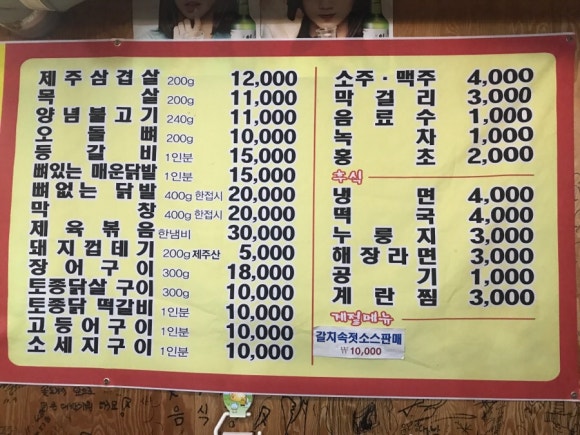 제주삼겹살 200g 12,000
목살 200g 11,000
양념불고기 240g 11,000
오돌뼈 200g 10,000
등갈비 1인분 15,000
뼈있는 매운닭발 1인분 15,000
뼈없는 닭발 400g 한접시 20,000
막창 400g 한접시 20,000
제육볶음 한냄비 30,000
돼지껍데기 200g 제주산 5,000
장어구이 300g 18,000
토종닭살구이 300g 10,000
토종닭 떡갈비 1인분 10,000
고등어구이 1인분 10,000
소세지구이 1인분 10,000
소주·맥주 4,000
막걸리 3,000
음료수 1,000
녹차 1,000
홍초 2,000
후식
냉면 4,000
떡국 4,000
누룽지 3,000
해장라면 3,000
공기 1,000
계란찜 3,000
계절메뉴
갈치속젓소스판매
₩10,000